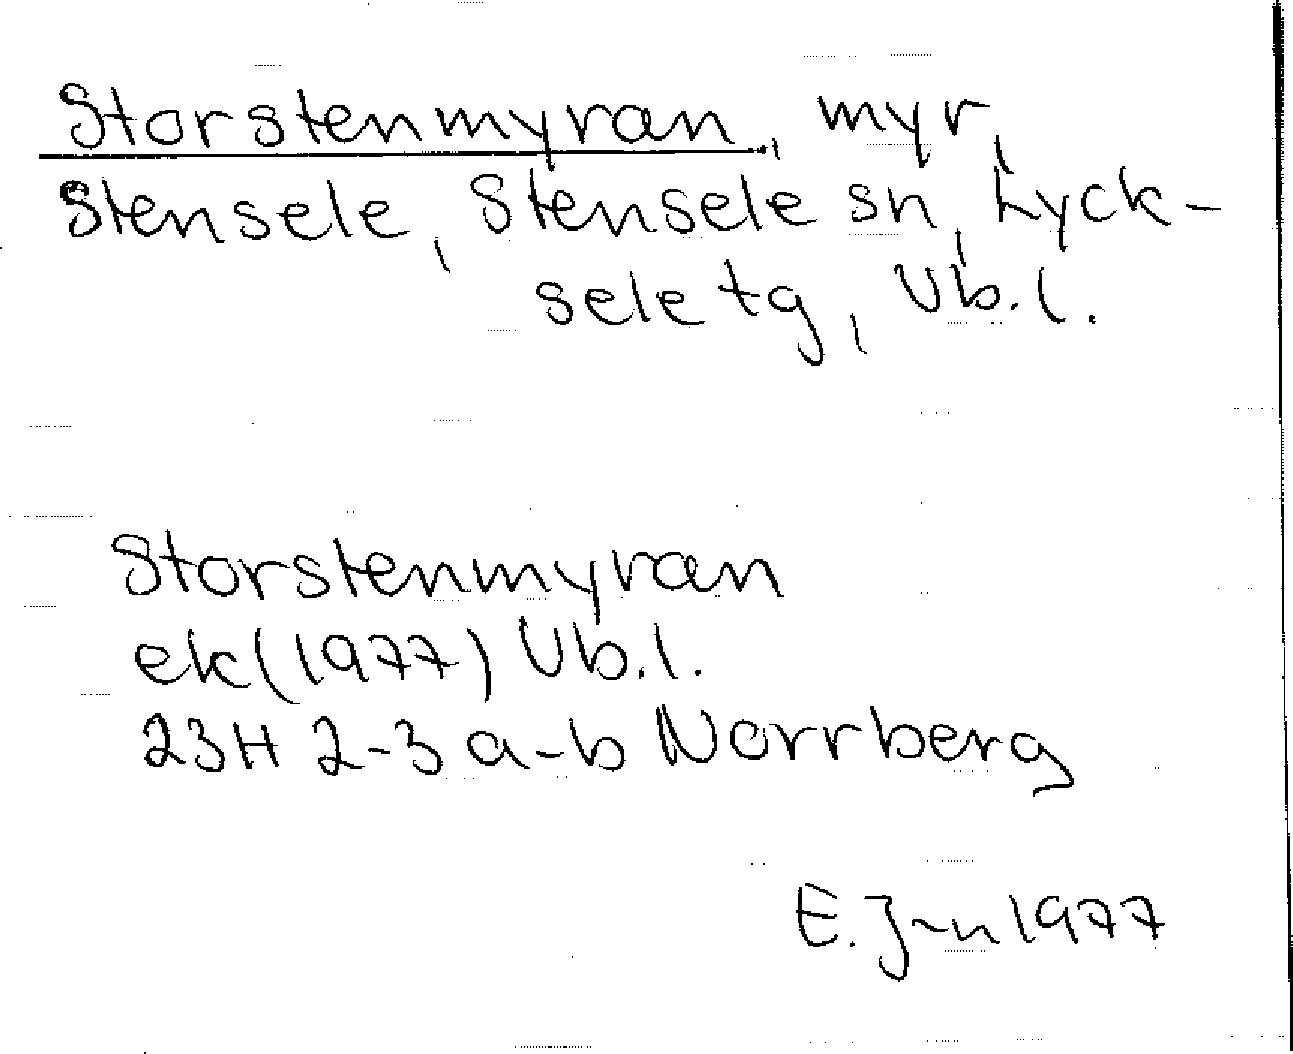 Storstenmyran, myr,
Stensele, Stensele sn, Lyck-
sele tg, Vb. l.
Storstenmyran
ek (1977) Vb. l.
23H 2-3 a-b Norrberg
E. J-n 1977